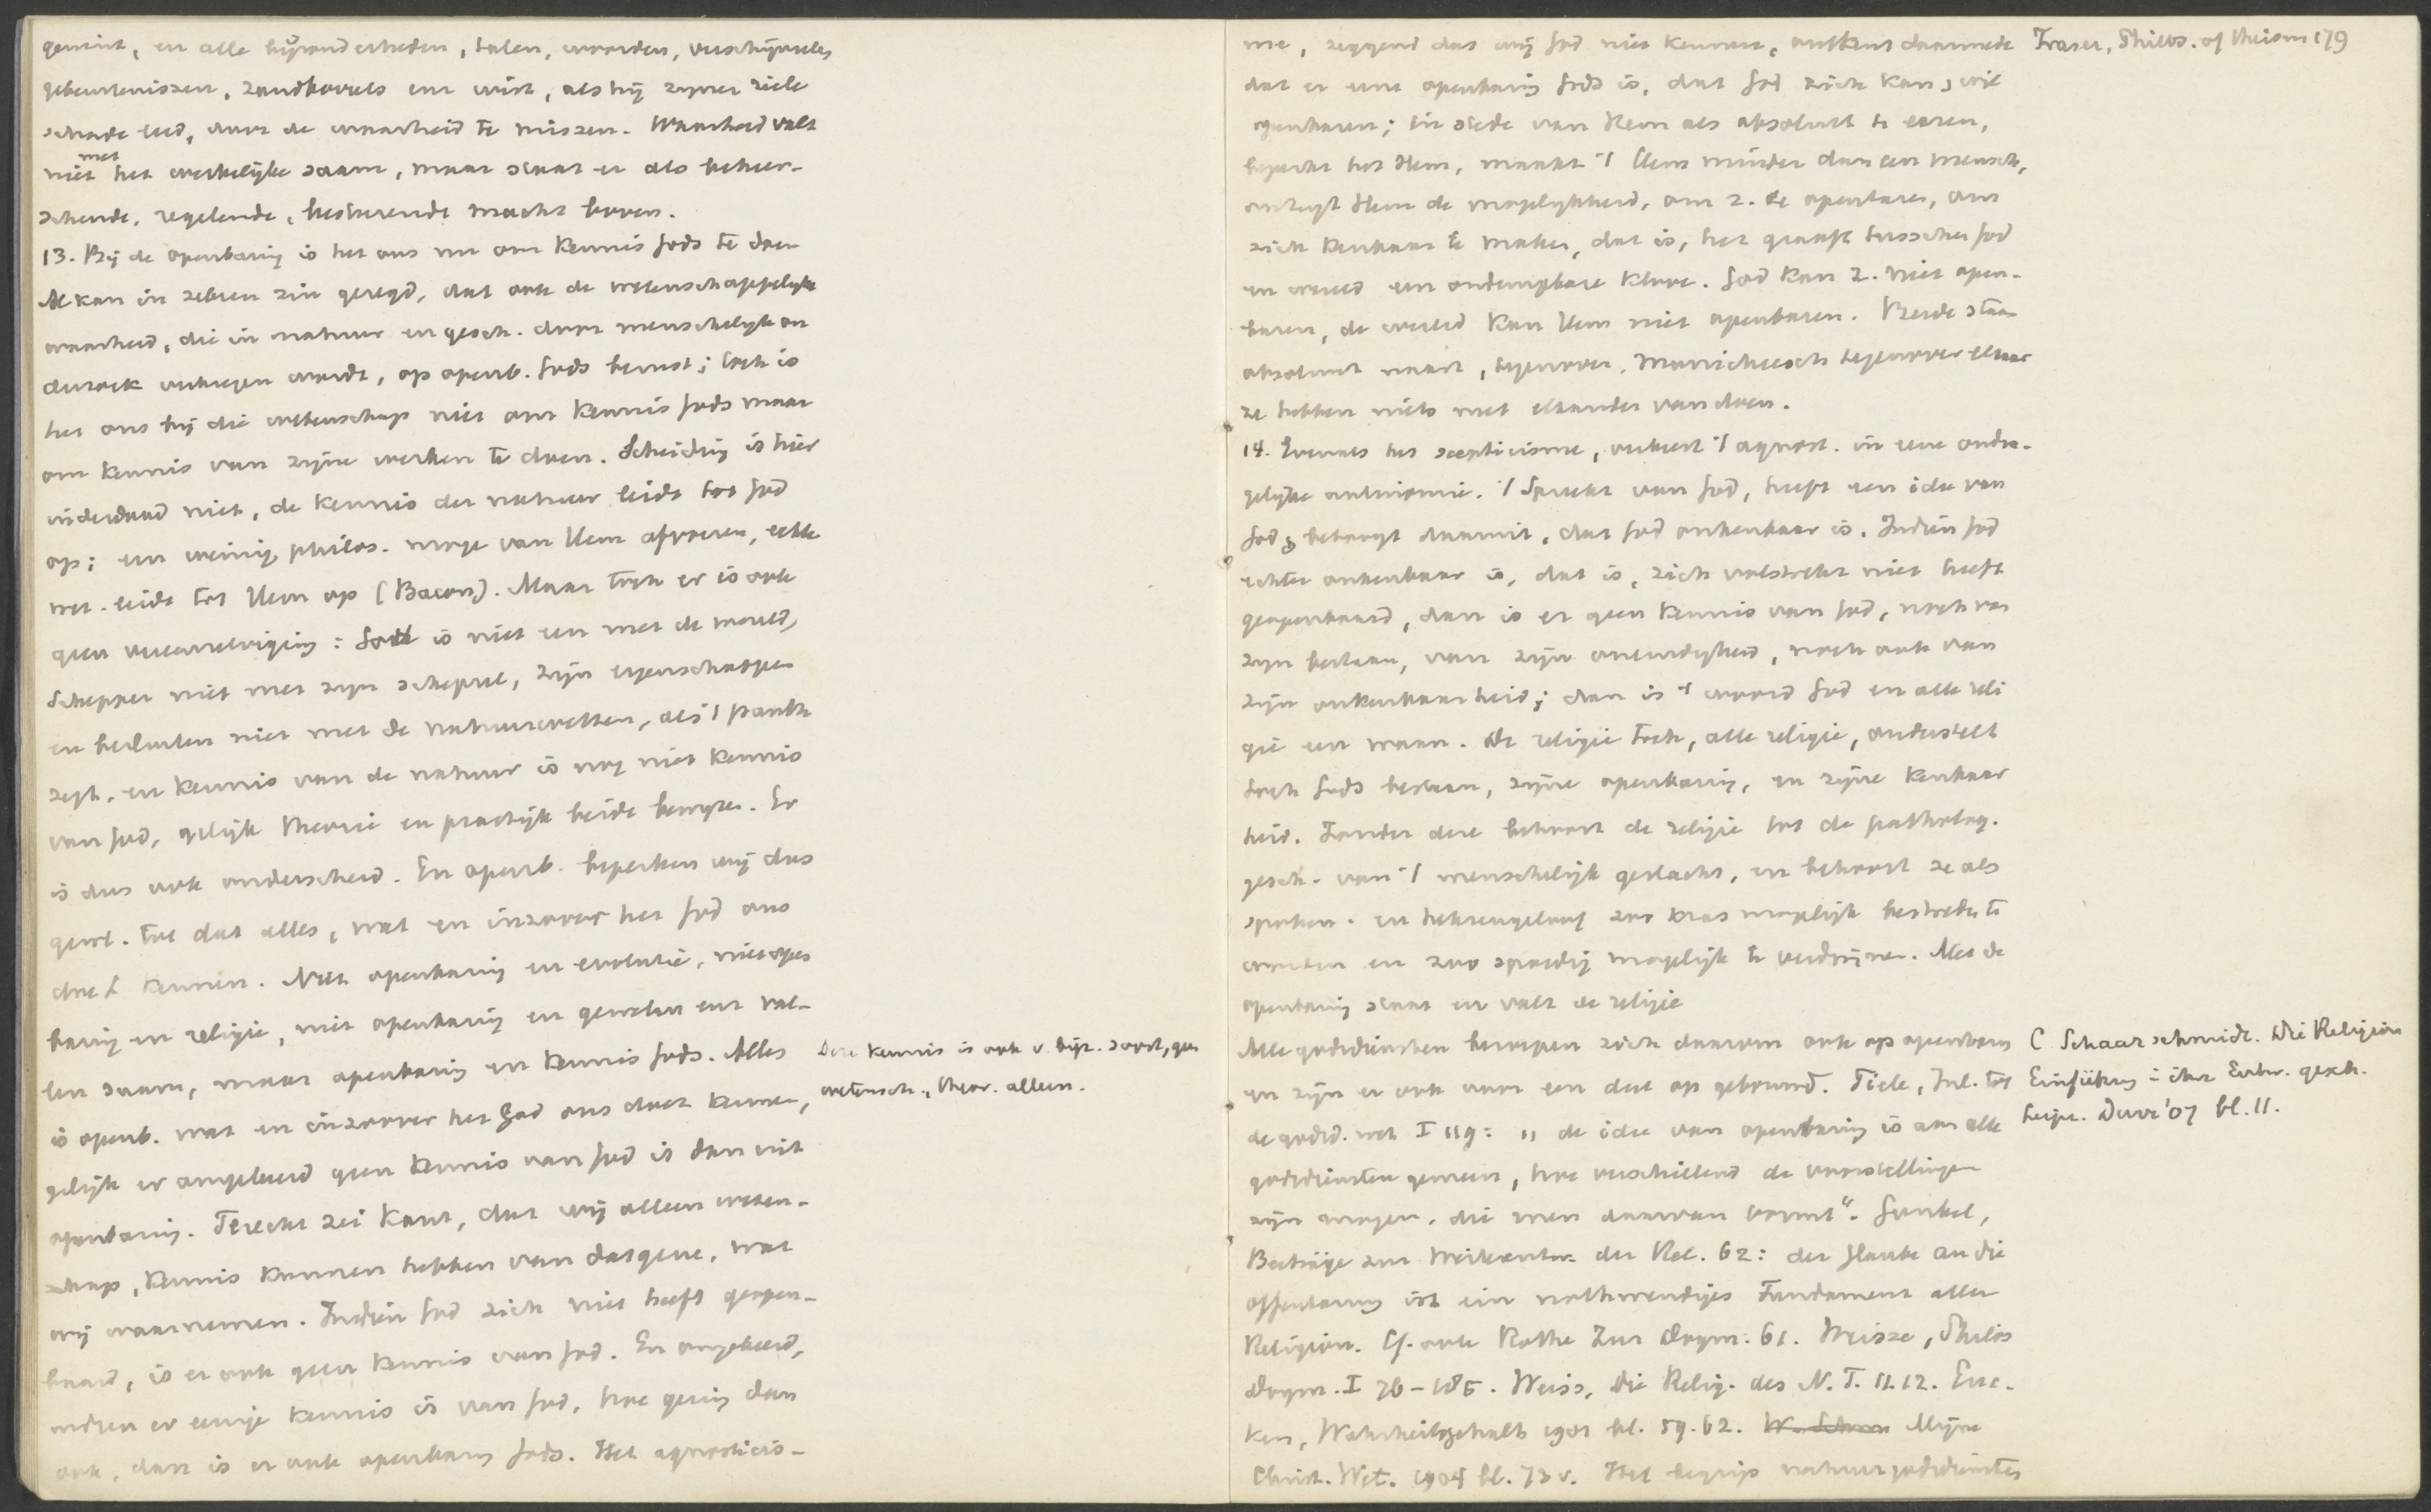 gemint, en alle bijzonderheden, talen, woorden, verschijnselen
gebeurtenissen, zandkorrels enz wint, als hij zyner ziele
schade leed, door de waarheid te missen. Waarheid valt
niet met het werkelijke saam, maar staat er als beheer-
schende, regelende, besturende macht boven.
13. Bij de openbaring is het ons nu om kennis Gods te doen
Al kan in zekeren zin gezegd, dat ook de wetenschappelyke
waarheid, die in natuur en gesch. door menschelijk on
derzoek verkregen wordt, op openb. Gods berust; toch is
het ons bij die wetenschap niet om kennis Gods maar
om kennis van zijne werken te doen. Scheiding is hier
inderdaad niet, de kennis der natuur leidt tot God
op; een weinig philos. moge van Hem afvoeren, echte
wet. leidt tot Hem op (Bacon). Maar toch er is ook
geen vereenzelviging: God is niet een met de wereld,
Schepper niet met zyn schepsel, zijn eigenschappen
en besluiten niet met de natuurwetten, als 't panth
zegt, en kennis van de natuur is nog niet kennis
van God, gelijk theorie en practijk beide bewyzen. Er
is dus ook onderscheid. En openb. beperken wij dus
gewl. tot dat alles, wat en inzoover het God ons
doet kennen. Niet openbaring en evolutie, niet open
baring en religie, niet openbaring en geweten enz val-
len saam, maar openbaring en kennis Gods. Alles
is openb. wat en inzoover het God ons doet kennen,
Deze kennis is ook v. bijz. soort, geen
wetensch., theor. alleen.
gelijk er omgekeerd geen kennis van God is dan uit
openbaring. Terecht zei Kant, dat wij alleen weten-
schap, kennis kunnen hebben van datgene, wat
wij waarnemen. Indien God zich niet heeft geopen-
baard, is er ook geen kennis van God. En omgekeerd,
indien er eenige kennis is van God, hoe gering dan
ook, dan is er ook openbaring Gods. Het agnosticis-
me, zeggend dat wij God niet kennen, ontkent daarmede
Fraser, Philos. of theism 179
dat er eene openbaring Gods is, dat God zich kan, wil
openbaren; in stede van Hem als absoluut te eeren,
beperkt het Hem, maakt 't Hem minder dan een mensch,
ontzegt Hem de mogelykheid, om z. te openbaren, om
zich kenbaar te maken, dat is, het graaft tusschen God
en wereld een ondempbare klove. God kan z. niet open-
baren, de wereld kan Hem niet openbaren. Beide staan
absoluut naast, tegenover, Manicheesch tegenover elkaar
ze hebben niets met elkander van doen.
14. Evenals het scepticisme, verkeert 't agnost. in eene onmo-
gelijke antinomie. 't Spreekt van God, heeft een idee van
God & betoogt daarmit, dat God onkenbaar is. Indien God
echter onkenbaar is, dat is, zich volstrekt niet heeft
geopenbaard, dan is er geen kennis van God, noch van
zyn bestaan, van zijn oneindigheid, noch ook van
zijn onkenbaarheid; dan is 't woord God en alle reli
gie een waan. De religie toch, alle religie, onderstelt
toch Gods bestaan, zijne openbaring, en zijne kenbaar
heid. Zonder deze behoort de religie tot de patholog.
gesch. van 't menschelijk geslacht, en behoort ze als
spoken- en heksengeloof zoo kras mogelijk bestreden te
worden en zoo spoedig mogelijk te verdwijnen. Met de
openbaring staat en valt de religie
Alle godsdiensten beroepen zich daarom ook op openbaring
en zijn er ook voor een deel op gebouwd. Tiele, Inl. tot
de godsd. wet I 119: „de idee van openbaring is aan alle
C Schaarschmidt. Die Religion
Einführung in ihre Entw. gesch.
Leipz. Durr '07 bl. 11.
godsdiensten gemeen, hoe verschillend de voorstellingen
zijn mogen, die men daarvan vormt“. Gunkel,
Beiträge zur Weiterentw. der Rel. 62: der Glaube an die
Offenbarung ist ein nothwendiges Fundament aller
Religion. Cf. ook Rothe Zur Dogm. 61. Weisse, Philos
Dogm. I 76-185. Weiss, Die Relig. des N. T. 11.12. Euc-
ken, Wahrheitsgehalt 1901 bl. 59.62. Mijne
Christ. Wet. 1904 bl. 73 v. Het begrip natuurgodsdiensten